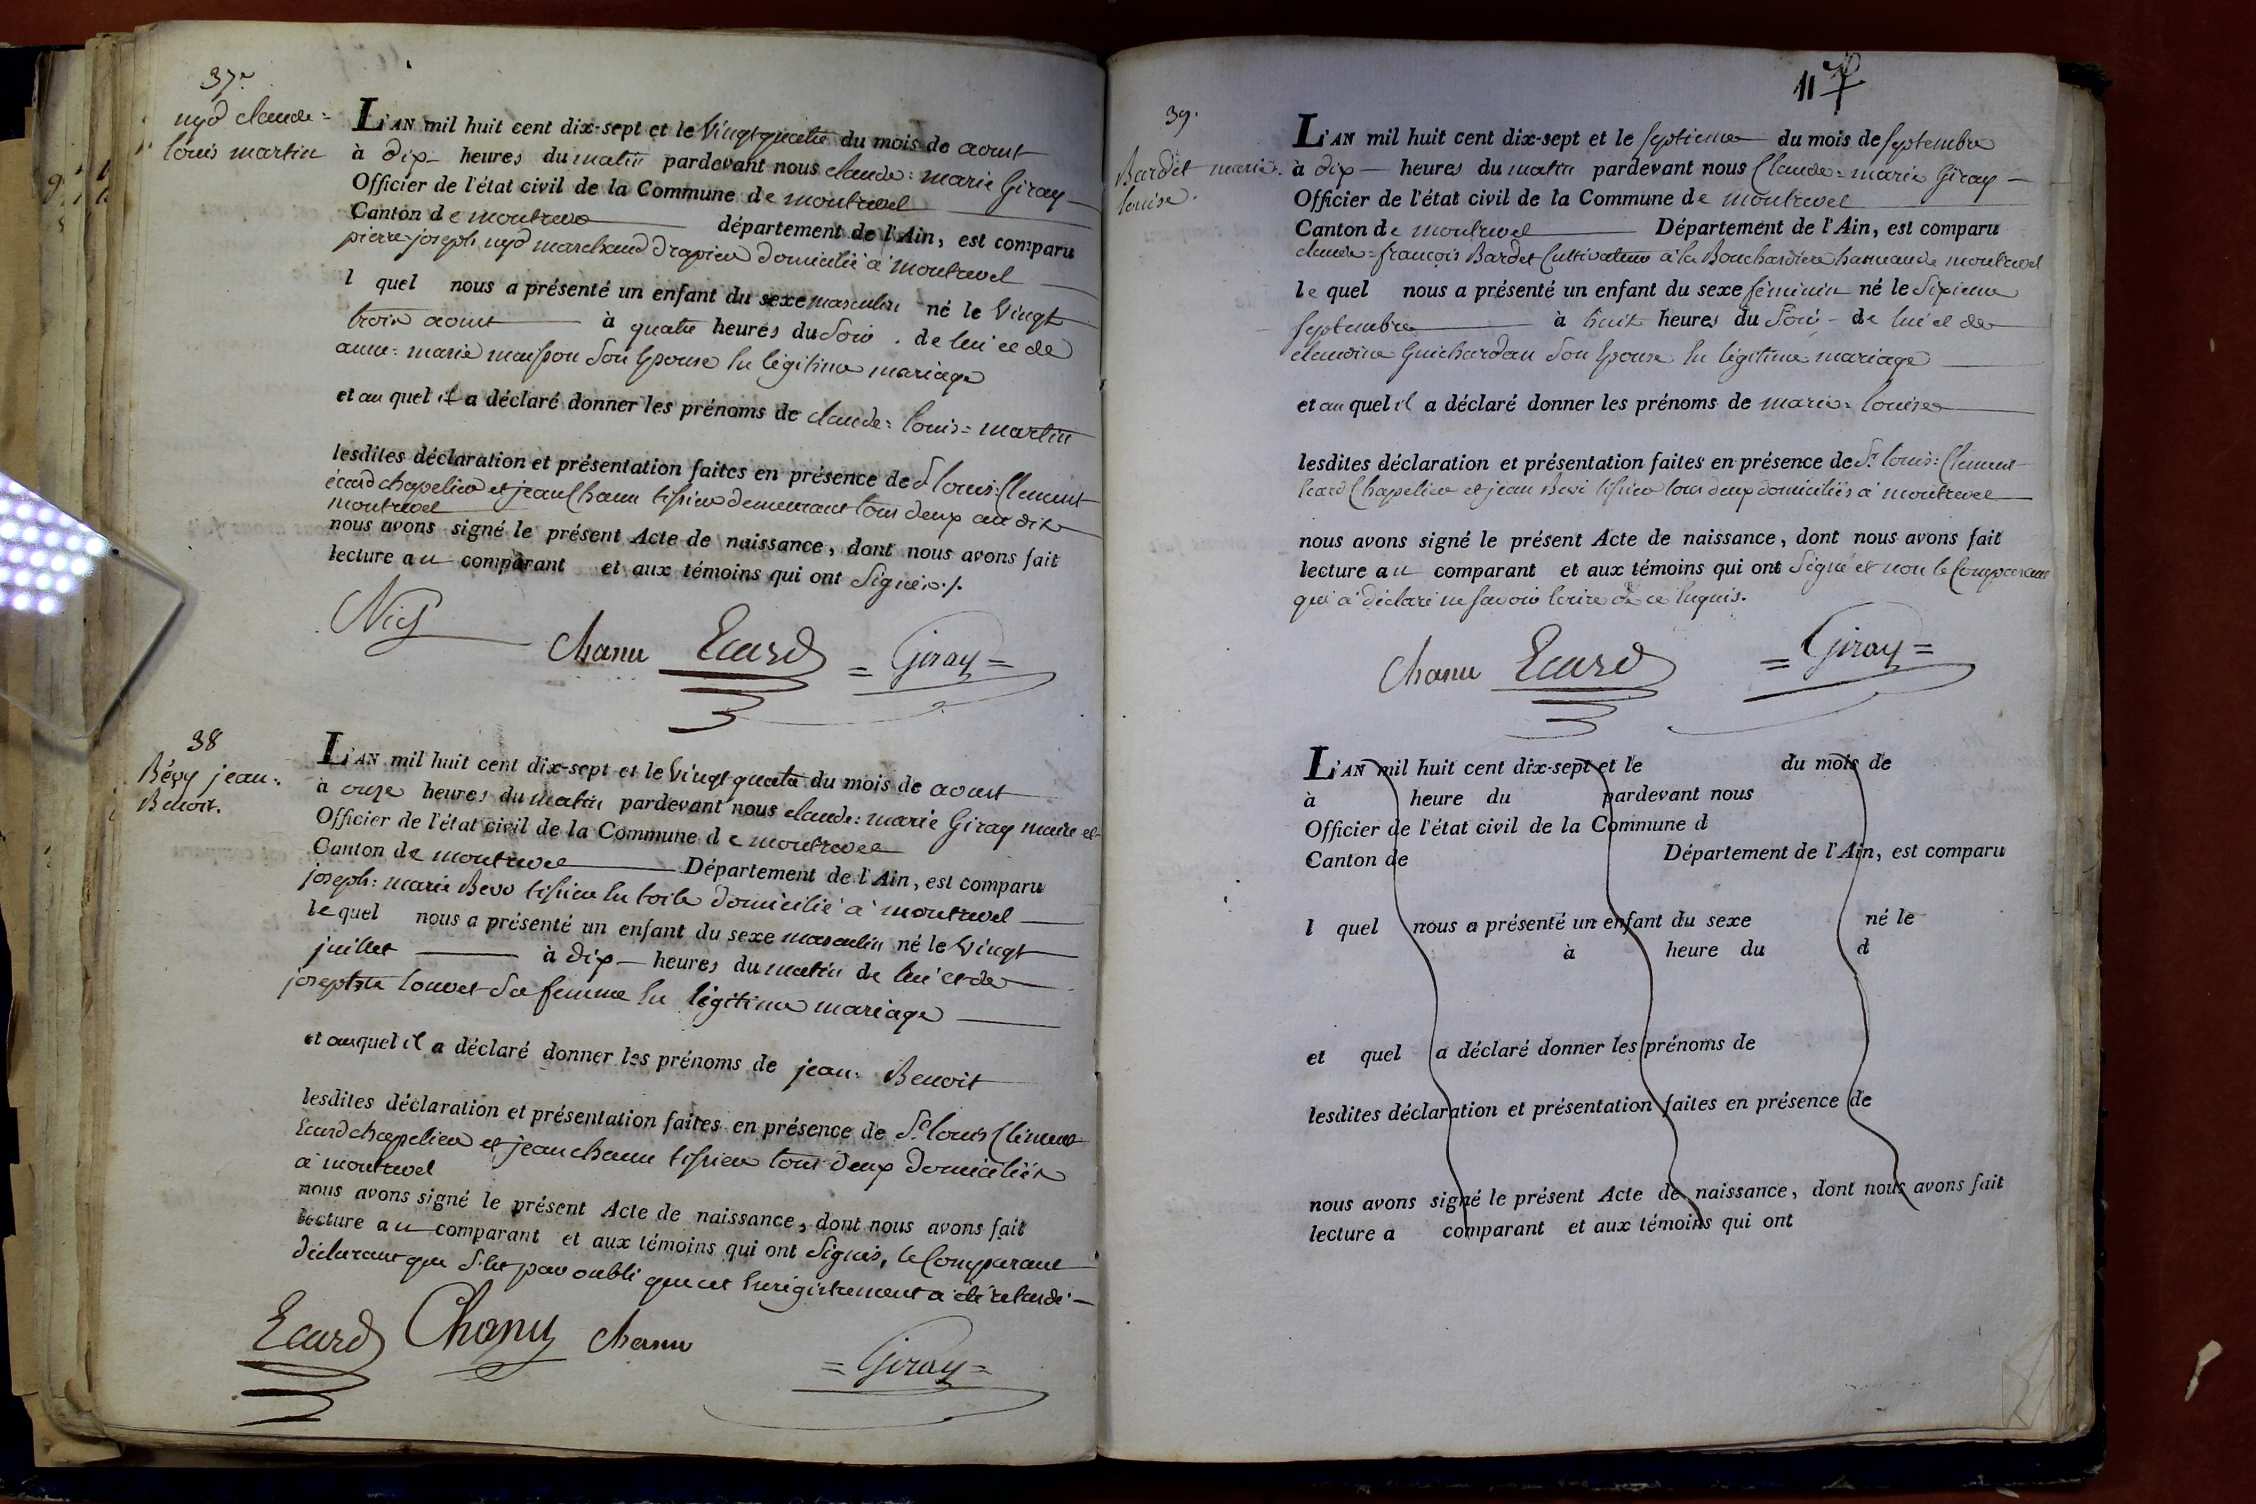 37.
nyd claude=
louis martin
L'AN mil huit cent dix-sept et le Vingt quatre du mois de aoust
à dix heures du matin pardevant nous claude = marie Giray
Officier de l'état civil de la Commune de montrevel
Canton de montrevel département de l'Ain, est comparu
pierre joseph nyd marchand drapier domicilié à montrevel
l quel nous a présenté un enfant du sexe masculin né le Vingt
trois aoust à quatre heures du Soir . de lui et de
anne = marie maisson Son Epouse En légitime mariage
et au quel il a déclaré donner les prénoms de claude = louis = martin
lesdites déclaration et présentation faites en présence de S. louis Clement
écard chapelier et jean Chanu tissier demeurant tous deux au dit
montrevel
nous avons signé le présent Acte de naissance, dont nous avons fait
lecture au comparant et aux témoins qui ont Signés ./.
chanu Ecard = Giray =
38
Bévy jean =
Benoit.
L'AN mil huit cent dix-sept et le Vingt-quatre du mois de aoust
à onze heures du matin pardevant nous claude = marie Giray maire et
Officier de l'état civil de la Commune de montrevel
Canton de montrevel Département de l'Ain, est comparu
joseph = marie tissier En toile domicilié à montrevel
le quel nous a présenté un enfant du sexe masculin né le Vingt
juillet à dix heures du matin de lui et de
louvet Sa femme En légitime mariage
et auquel il a déclaré donner les prénoms de jean = Benoit
lesdites déclaration et présentation faites en présence de Sr. louis Clément
Ecard chapelier et jean chanu tissier tous deux domiciliés
à montrevel
nous avons signé le présent Acte de naissance, dont nous avons fait
lecture au comparant et aux témoins qui ont Signés, le Comparant
déclarant que S'est par oubli que cet Enregistrement a été retardé
Ecard Chanu chanu
= Giray =
11
39.
Bardet marie =
louise.
L'AN mil huit cent dix-sept et le septieme du mois de septembre
à dix heures du matin pardevant nous Claude = marie Giray
Officier de l'état civil de la Commune de montrevel
Canton de montrevel Département de l'Ain, est comparu
claude = françois Bardet Cultivateur à la Bouchardiere hameau de montrevel
le quel nous a présenté un enfant du sexe féminin né le Sixieme
septembre à huit heures du Soir de lui et de
claudine Guichardan Son Epouse En légitime mariage
et au quel il a déclaré donner les prénoms de marie = louise
lesdites déclaration et présentation faites en présence de Sr. louis = Clement
Ecard Chapelier et jean tissier tous deux domiciliés à montrevel
nous avons signé le présent Acte de naissance, dont nous avons fait
lecture au comparant et aux témoins qui ont Signé et non le Comparant
qui a déclaré ne savoir Ecrire de ce Enquis.
Chanu Ecard = Giray =
L'AN mil huit cent dix-sept et le du mois de
à heure du pardevant nous
Officier de l'état civil de la Commune d
Canton de Département de l'Ain, est comparu
l quel nous a présenté un enfant du sexe né le
à heure du d
et quel a déclaré donner les prénoms de
lesdites déclaration et présentation faites en présence de
nous avons signé le présent Acte de naissance, dont nous avons fait
lecture a comparant et aux témoins qui ont